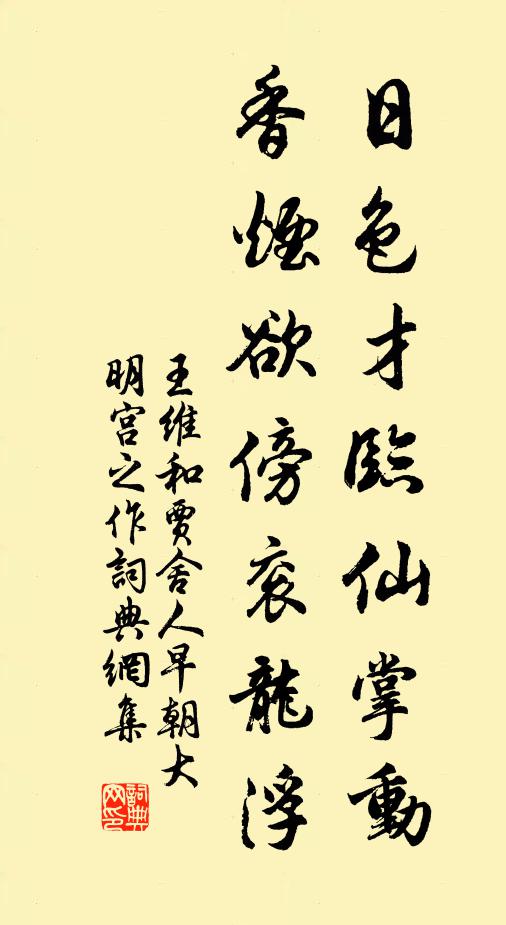 日色才臨仙掌動
香煙欲傍衮龍浮
王維和賈舍人早朝大
明宮之作詞典網集
詞典
网印